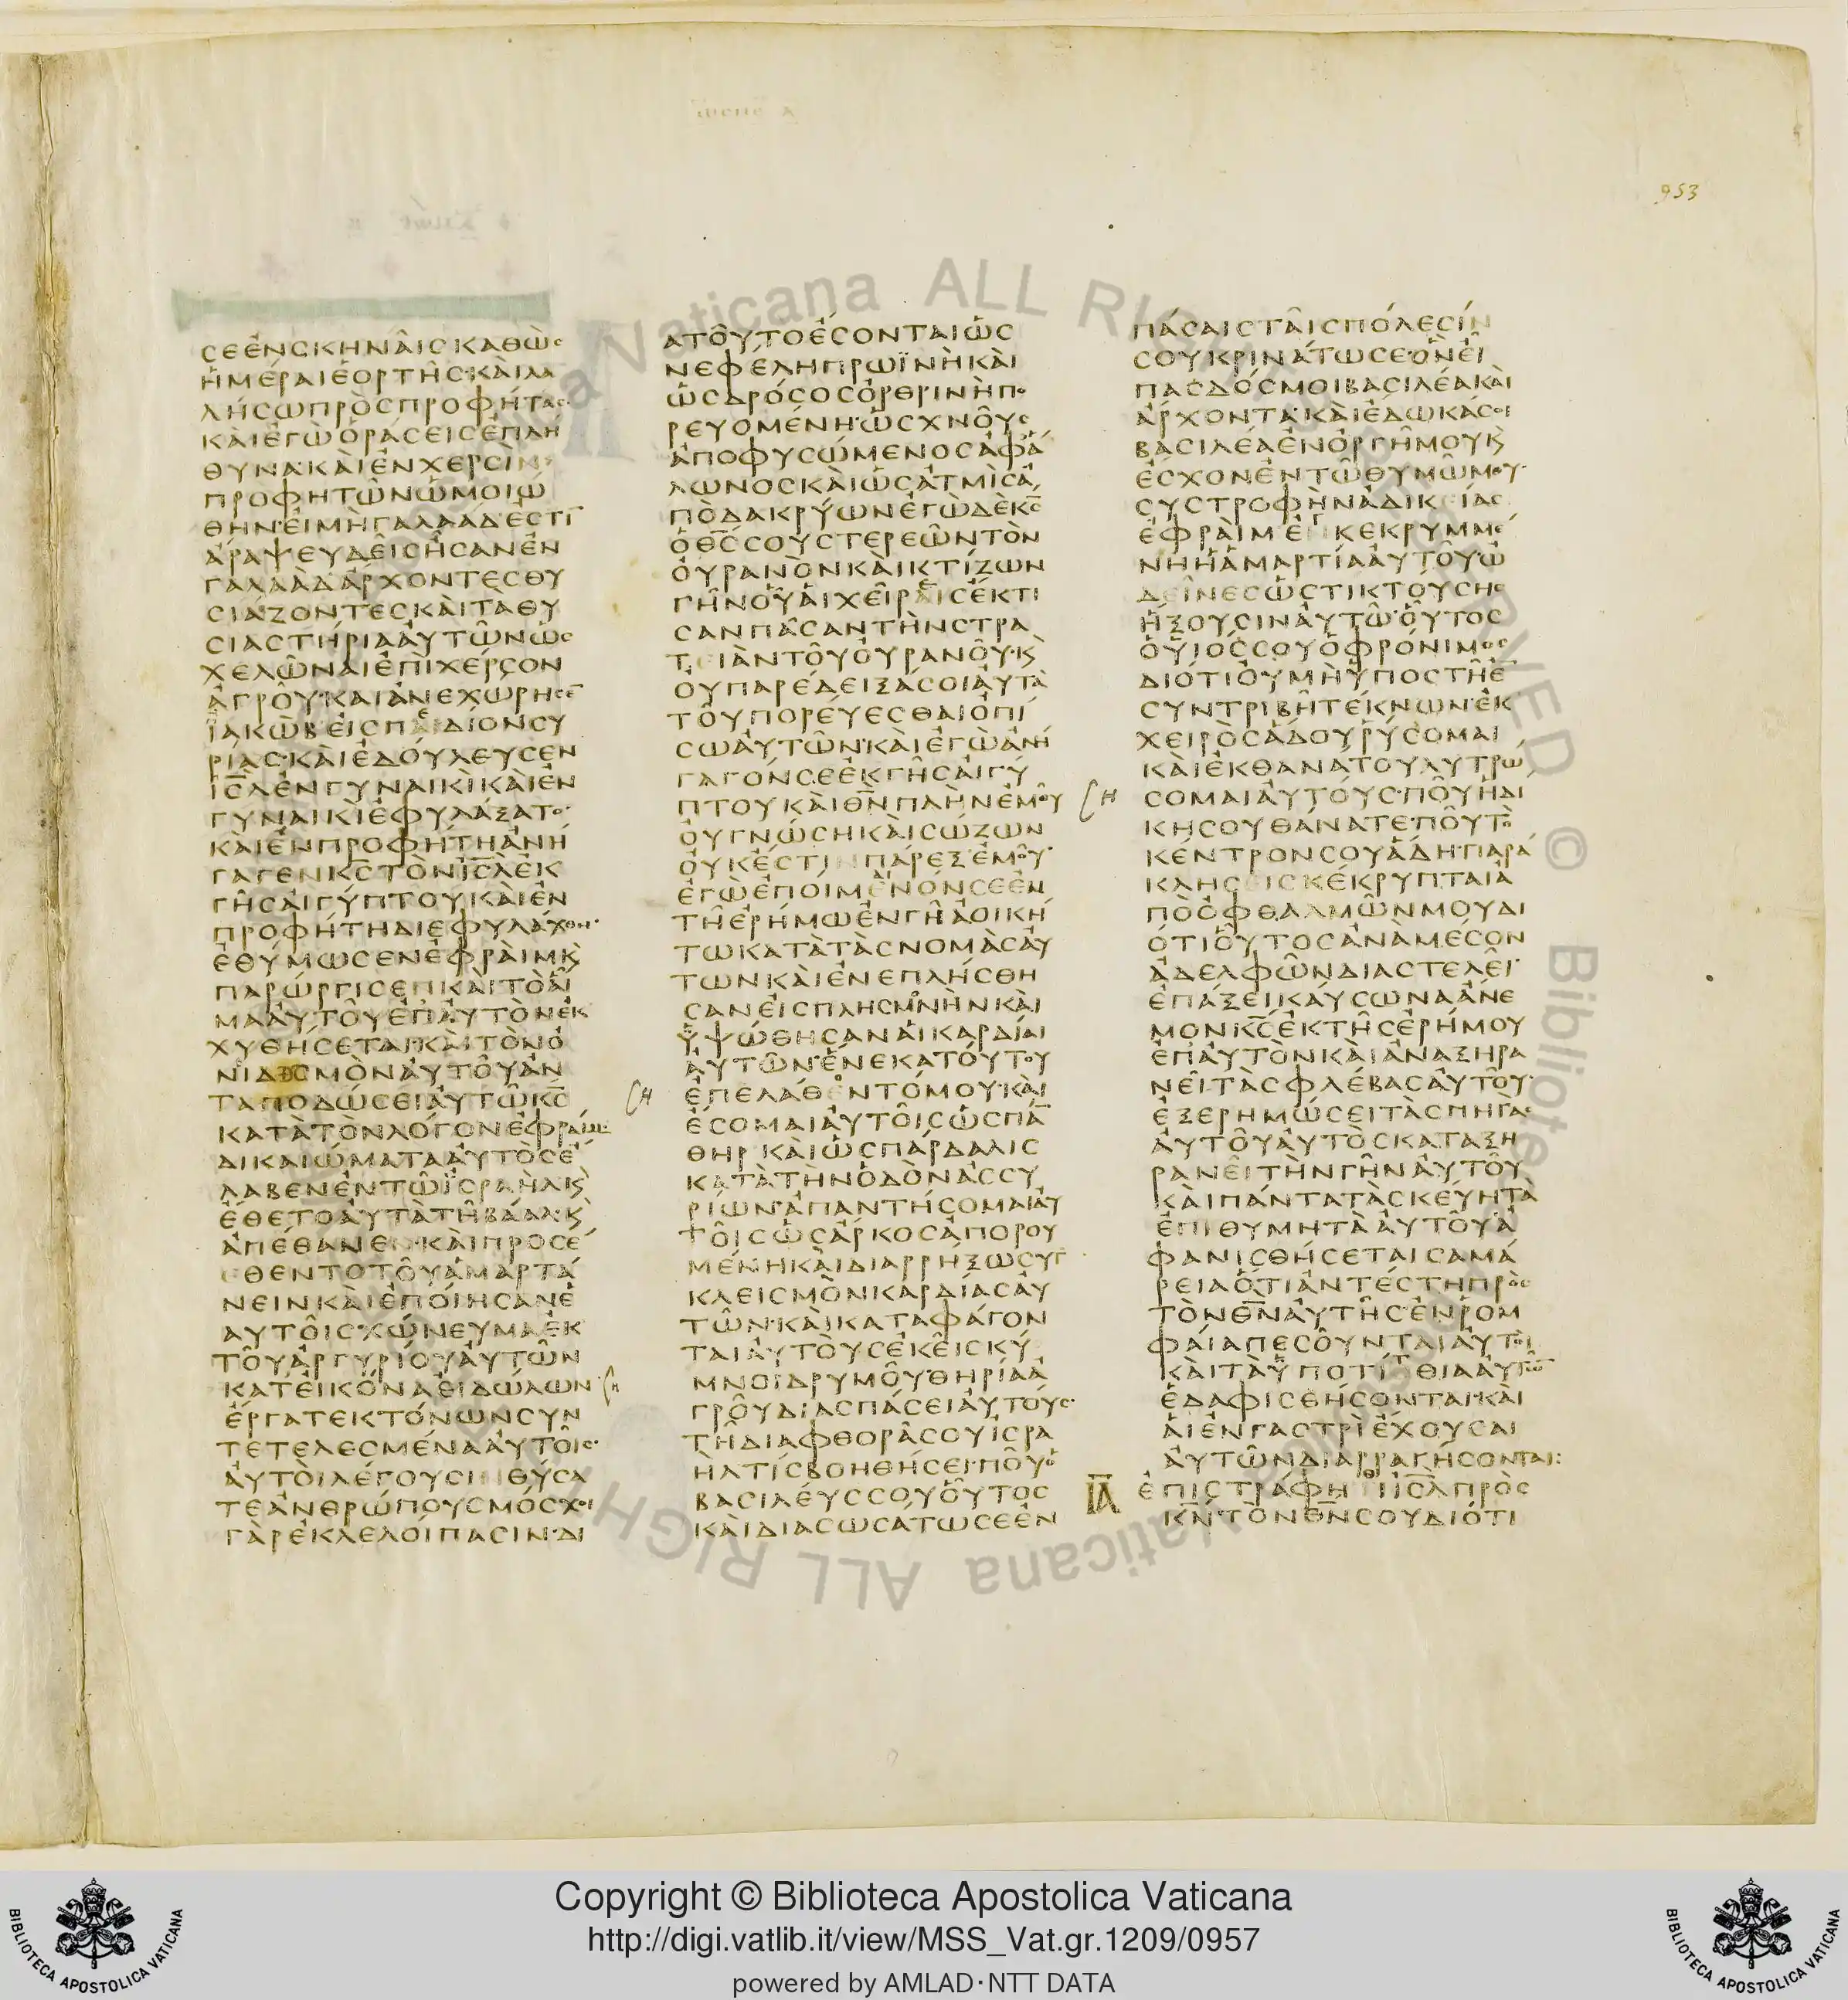 ωσηε α
953
ΣΕΕΝΣΚΗΝΑΙΣΚΑΘΩΣ
ΗΜΕΡΑΙΕΟΡΤΗΣ·ΚΑΙΛΑ
ΛΗΣΩΠΡΟΣΠΡΟΦΗΤΑΣ·
ΚΑΙΕΓΩΟΡΑΣΕΙΣΕΠΛΗ
ΘΥΝΑ·ΚΑΙΕΝΧΕΡΣΙΝ
ΠΡΟΦΗΤΩΝΩΜΟΙΩ
ΘΗΝ·ΕΙΜΗΓΑΛΑΑΔΕΣΤΙ̅
ΑΡΑΨΕΥΔΕΙΣΗΣΑΝΕΝ
ΓΑΛΑΑΔΑΡΧΟΝΤΕΣΘΥ
ΣΙΑΖΟΝΤΕΣΚΑΙΤΑΘΥ
ΣΙΑΣΤΗΡΙΑΑΥΤΩΝΩΣ
ΧΕΛΩΝΑΙΕΠΙΧΕΡΣΟΝ
ΑΓΡΟΥ·ΚΑΙΑΝΕΧΩΡΗΣΕ̅
ΪΑΚΩΒΕΙΣΠΑΙΔΙΟΝΣΥ
ΡΙΑΣ·ΚΑΙΕΔΟΥΛΕΥΣΕΝ
Ι̅Σ̅Λ̅ΕΝΓΥΝΑΙΚΙΚΑΙΕΝ
ΓΥΝΑΙΚΙΕΦΥΛΑΞΑΤΟ·
ΚΑΙΕΝΠΡΟΦΗΤΗΑΝΗ
ΓΑΓΕΝΚ̅Σ̅ΤΟΝΙ̅Σ̅Λ̅ΕΚ
ΓΗΣΑΙΓΥΠΤΟΥΚΑΙΕΝ
ΠΡΟΦΗΤΗΔΙΕΦΥΛΑΧΘΗ·
ΕΘΥΜΩΣΕΝΕΦΡΑΙΜΚ̀
ΠΑΡΩΡΓΙΣΕΝΚΑΙΤΟΑΙ
ΜΑΑΥΤΟΥΕΠΑΥΤΟΝΕΚ
ΧΥΘΗΣΕΤΑΙ·ΚΑΙΤΟΝΟ
ΝΙΔΙΣΜΟΝΑΥΤΟΥΑΝ
ΤΑΠΟΔΩΣΕΙΑΥΤΩΚ̅Σ̅
ΚΑΤΑΤΟΝΛΟΓΟΝΕΦΡΑΙΜ·
ΔΙΚΑΙΩΜΑΤΑΑΥΤΟΣΕ
ΛΑΒΕΝΕΝΤΩΪΣΡΑΗΛΚ̀
ΕΘΕΤΟΑΥΤΑΤΗΒΑΑΛ·Κ̀
ΑΠΕΘΑΝΕΝ·ΚΑΙΠΡΟΣΕ
ΘΕΝΤΟΤΟΥΑΜΑΡΤΑ
ΝΕΙΝΚΑΙΕΠΟΙΗΣΑΝΕ
ΑΥΤΟΙΣΧΩΝΕΥΜΑΕΚ
ΤΟΥΑΡΓΥΡΙΟΥΑΥΤΩΝ
ΚΑΤΕΙΚΟΝΑΕΙΔΩΛΩΝ
ΕΡΓΑΤΕΚΤΟΝΩΝΣΥΝ
ΤΕΤΕΛΕΣΜΕΝΑΑΥΤΟΙΣ·
ΑΥΤΟΙΛΕΓΟΥΣΙΝΘΥΣΑ
ΤΕΑΝΘΡΩΠΟΥΣΜΟΣΧΟΙ
ΓΑΡΕΚΛΕΛΟΙΠΑΣΙΝ·ΔΙ
ΑΤΟΥΤΟΕΣΟΝΤΑΙΩΣ
ΝΕΦΕΛΗΠΡΩΪΝΗΚΑΙ
ΩΣΔΡΟΣΟΣΟΡΘΡΙΝΗΠΟ
ΡΕΥΟΜΕΝΗ·ΩΣΧΝΟΥΣ
ΑΠΟΦΥΣΩΜΕΝΟΣΑΦΑ
ΛΩΝΟΣΚΑΙΩΣΑΤΜΙΣΑ
ΠΟΔΑΚΡΥΩΝΕΓΩΔΕΚ̅Σ̅
ΟΘ̅Σ̅ΣΟΥΣΤΕΡΕΩΝΤΟΝ
ΟΥΡΑΝΟΝΚΑΙΚΤΙΖΩΝ
ΓΗΝΟΥΑΙΧΕΙΡΕΣΕΚΤΙ
ΣΑΝΠΑΣΑΝΤΗΝΣΤΡΑ
ΤΕΙΑΝΤΟΥΟΥΡΑΝΟΥ·Κ̀
ΟΥΠΑΡΕΔΕΙΞΑΣΟΙΑΥΤΑ
ΤΟΥΠΟΡΕΥΕΣΘΑΙΟΠΙ
ΣΩΑΥΤΩΝ·ΚΑΙΕΓΩΑΝΗ
ΓΑΓΟΝΣΕΕΚΓΗΣΑΙΓΥ
ΠΤΟΥΚΑΙΘ̅Ν̅ΠΛΗΝΕΜΟΥ
ΟΥΓΝΩΣΗΚΑΙΣΩΖΩΝ
ΟΥΚΕΣΤΙΝΠΑΡΕΞΕΜΟΥ·
ΕΓΩΕΠΟΙΜΕΝΟΝΣΕΕΝ
ΤΗΕΡΗΜΩΕΝΓΗΑΟΙΚΗ
ΤΩΚΑΤΑΤΑΣΝΟΜΑΣΑΥ
ΤΩΝΚΑΙΕΝΕΠΛΗΣΘΗ
ΣΑΝΕΙΣΠΛΗΣΜΟΝΗΝΚΑΙ
ΥΨΩΘΗΣΑΝΑΙΚΑΡΔΙΑΙ
ΑΥΤΩΝ·ΕΝΕΚΑΤΟΥΤΟΥ
ΕΠΕΛΑΘΟΝΤΟΜΟΥ·ΚΑΙ
ΕΣΟΜΑΙΑΥΤΟΙΣΩΣΠΑ̅
ΘΗΡΚΑΙΩΣΠΑΡΔΑΛΙΣ
ΚΑΤΑΤΗΝΟΔΟΝΑΣΣΥ
ΡΙΩΝ·ΑΠΑΝΤΗΣΟΜΑΙΑΥ
ΤΟΙΣΩΣΑΡΚΟΣΑΠΟΡΟΥ
ΜΕΝΗΚΑΙΔΙΑΡΡΗΞΩΣΥΓ
ΚΛΕΙΣΜΟΝΚΑΡΔΙΑΣΑΥ
ΤΩΝ·ΚΑΙΚΑΤΑΦΑΓΟΝ
ΤΑΙΑΥΤΟΥΣΕΚΕΙΣΚΥ
ΜΝΟΙΔΡΥΜΟΥΘΗΡΙΑΑ
ΓΡΟΥΔΙΑΣΠΑΣΕΙΑΥΤΟΥΣ·
ΤΗΔΙΑΦΘΟΡΑΣΟΥΙΣΡΑ
ΗΛΤΙΣΒΟΗΘΗΣΕΙ·ΠΟΥΟ
ΒΑΣΙΛΕΥΣΣΟΥΟΥΤΟΣ
ΚΑΙΔΙΑΣΩΣΑΤΩΣΕΕΝ
ΠΑΣΑΙΣΤΑΙΣΠΟΛΕΣΙΝ
ΣΟΥΚΡΙΝΑΤΩΣΕΟΝΕΙ
ΠΑΣΔΟΣΜΟΙΒΑΣΙΛΕΑΚΑΙ
ΑΡΧΟΝΤΑ·ΚΑΙΕΔΩΚΑΣΟΙ
ΒΑΣΙΛΕΑΕΝΟΡΓΗΜΟΥΚ̀
ΕΣΧΟΝΕΝΤΩΘΥΜΩΜΟΥ·
ΣΥΣΤΡΟΦΗΝΑΔΙΚΕΙΑΣ
ΕΦΡΑΙΜΕΓΚΕΚΡΥΜΜΕ
ΝΗΗΑΜΑΡΤΙΑΑΥΤΟΥΩ
ΔΕΙΝΕΣΩΣΤΙΚΤΟΥΣΗΣ
ΗΞΟΥΣΙΝΑΥΤΩ·ΟΥΤΟΣ
ΟΥΙΟΣΣΟΥΟΦΡΟΝΙΜΟΣ
ΔΙΟΤΙΟΥΜΗΥΠΟΣΤΗΕ̅
ΣΥΝΤΡΙΒΗΤΕΚΝΩΝ·ΕΚ
ΧΕΙΡΟΣΑΔΟΥΡΥΣΟΜΑΙ
ΚΑΙΕΚΘΑΝΑΤΟΥΛΥΤΡΩ
ΣΟΜΑΙΑΥΤΟΥΣ·ΠΟΥΗΔΙ
ΚΗΣΟΥΘΑΝΑΤΕ·ΠΟΥΤΟ
ΚΕΝΤΡΟΝΣΟΥΑΔΗ·ΠΑΡΑ
ΚΛΗΣΕΙΣΚΕΚΡΥΠΤΑΙΑ
ΠΟΟΦΘΑΛΜΩΝΜΟΥΔΙ
ΟΤΙΟΥΤΟΣΑΝΑΜΕΣΟΝ
ΑΔΕΛΦΩΝΔΙΑΣΤΕΛΕΙ·
ΕΠΑΞΕΙΚΑΥΣΩΝΑΑΝΕ
ΜΟΝΚ̅Σ̅ΕΚΤΗΣΕΡΗΜΟΥ
ΕΠΑΥΤΟΝΚΑΙΑΝΑΞΗΡΑ
ΝΕΙΤΑΣΦΛΕΒΑΣΑΥΤΟΥ·
ΕΞΕΡΗΜΩΣΕΙΤΑΣΠΗΓΑΣ
ΑΥΤΟΥΑΥΤΟΣΚΑΤΑΞΗ
ΡΑΝΕΙΤΗΝΓΗΝΑΥΤΟΥ
ΚΑΙΠΑΝΤΑΤΑΣΚΕΥΗΤΑ
ΕΠΙΘΥΜΗΤΑΑΥΤΟΥ·Α
ΦΑΝΙΣΘΗΣΕΤΑΙΣΑΜΑ
ΡΕΙΑΟΤΙΑΝΤΕΣΤΗΠΡΟΣ
ΤΟΝΘ̅Ν̅ΑΥΤΗΣ·ΕΝΡΟΜ
ΦΑΙΑΠΕΣΟΥΝΤΑΙΑΥΤΟΙ
ΚΑΙΤΑΥΠΟΤΙΤΘΙΑΑΥΤΩ̅
ΕΔΑΦΙΣΘΗΣΟΝΤΑΙ·ΚΑΙ
ΑΙΕΝΓΑΣΤΡΙΕΧΟΥΣΑΙ
ΑΥΤΩΝΔΙΑΡΡΑΓΗΣΟΝΤΑΙ:
Ι̅Α̅ ΕΠΙΣΤΡΑΦΗΘΙΙ̅Σ̅Λ̅ΠΡΟΣ
Κ̅Ν̅·ΤΟΝΘ̅Ν̅ΣΟΥΔΙΟΤΙ
Copyright © Biblioteca Apostolica Vaticana
http://digi.vatlib.it/view/MSS_Vat.gr.1209/0957
powered by AMLAD·NTT DATA
BIBLIOTECA APOSTOLICA VATICANA
BIBLIOTECA APOSTOLICA VATICANA